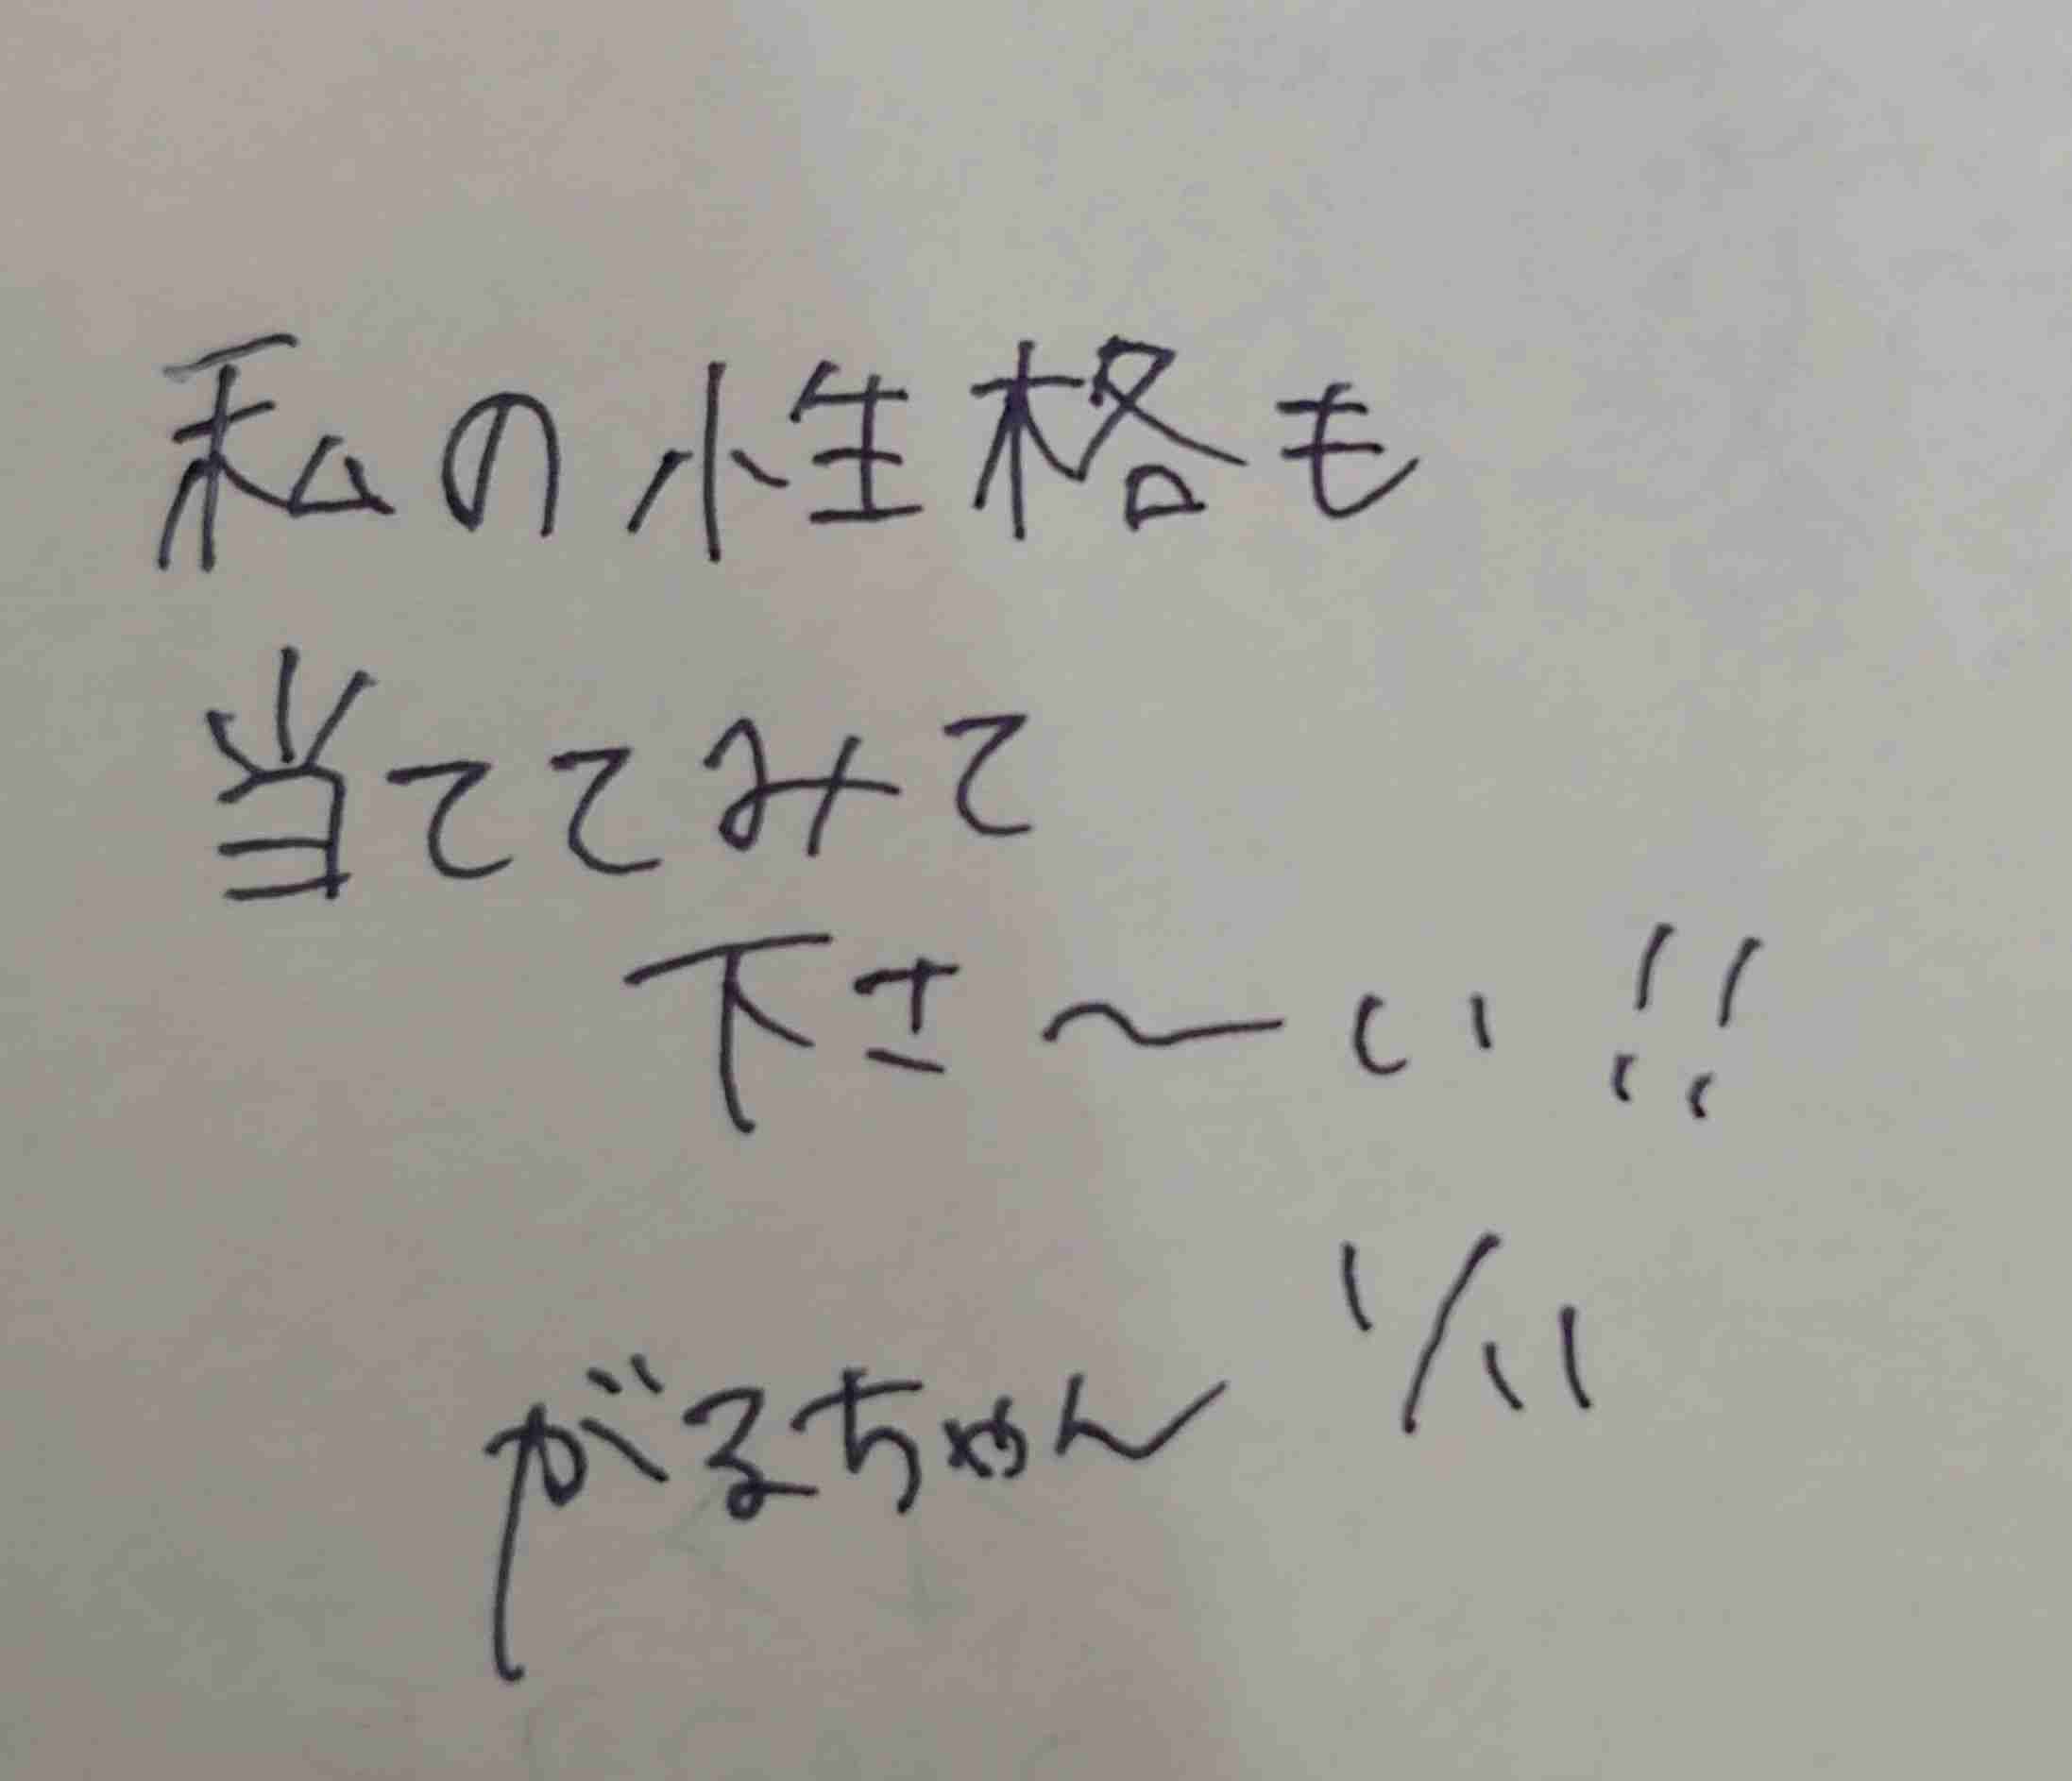 私の性格も
当ててみて
下さ〜い!!
がるちゃん 1/11